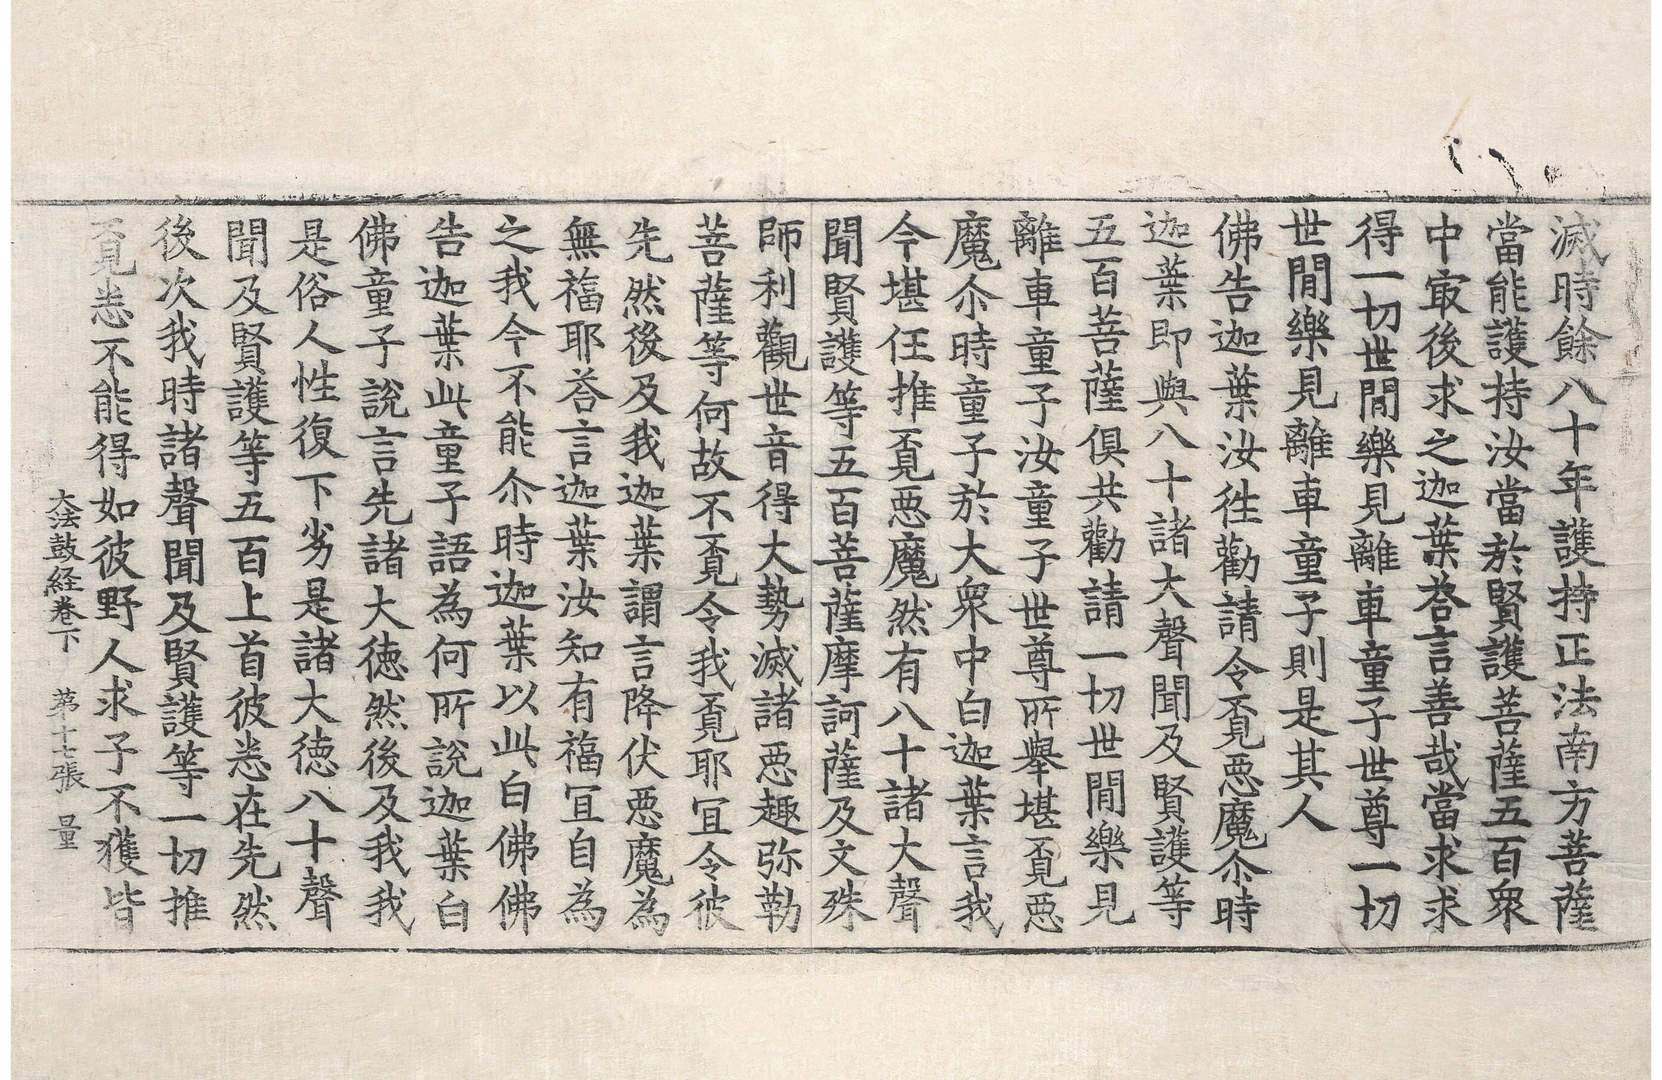 滅時餘八十年護持正法南方菩薩
當能護持汝當於賢護菩薩五百衆
中㝡後求之迦葉荅言善哉當求求
得一切世閒樂見離車童子世尊一切
世閒樂見離車童子則是其人
佛告迦葉汝徃勸請令覔惡魔尒時
迦葉即與八十諸大聲聞及賢護等
五百菩薩俱共勸請一切世閒樂見
離車童子汝童子世尊所舉堪覔惡
魔尒時童子於大衆中白迦葉言我
今堪任推覔惡魔然有八十諸大聲
聞賢護等五百菩薩摩訶薩及文殊
師利觀世音得大勢滅諸惡趣弥勒
菩薩等何故不覔令我覔耶冝令彼
先然後及我迦葉謂言降伏惡魔為
無福耶荅言迦葉汝知有福冝自為
之我今不能尒時迦葉以此白佛佛
告迦葉此童子語為何所說迦葉白
佛童子說言先諸大徳然後及我我
是俗人性復下劣是諸大徳八十聲
聞及賢護等五百上首彼悉在先然
後次我時諸聲聞及賢護等一切推
覔悉不能得如彼野人求子不獲皆
大法鼓経卷下 第十七張 量